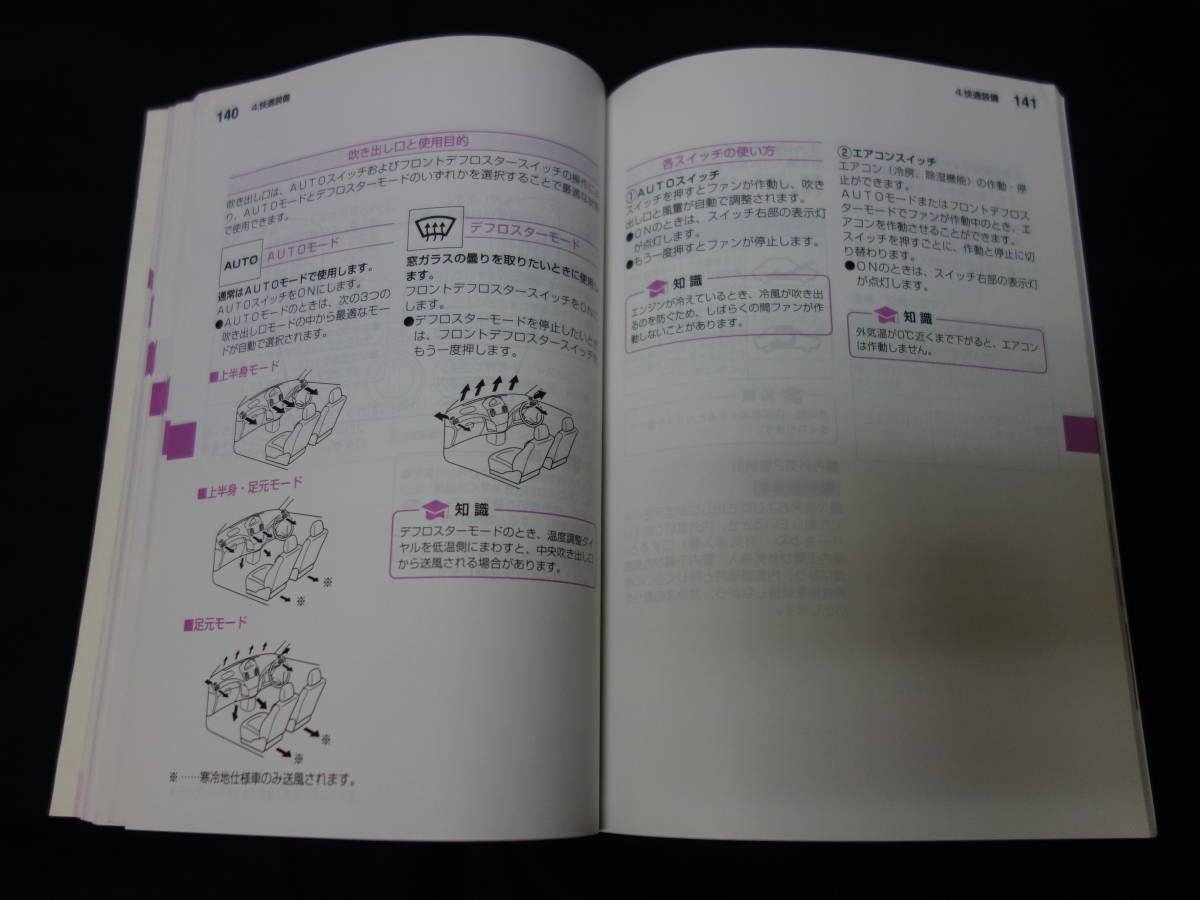 140 4.快適装備
吹き出し口と使用目的
吹き出し口は、AUTOスイッチおよびフロントデフロスタースイッチの操作によ
り、AUTOモードとデフロスターモードのいずれかを選択することで最適な状態
で使用できます。
AUTO
AUTOモード
通常はAUTOモードで使用します。
AUTOスイッチをONにします。
●AUTOモードのときは、次の3つの
吹き出し口モードの中から最適なモー
ドが自動で選択されます。
■上半身モード
■上半身・足元モード
※
※
■足元モード
※
※
※……寒冷地仕様車のみ送風されます。
デフロスターモード
窓ガラスの曇りを取りたいときに使用し
ます。
フロントデフロスタースイッチをONに
します。
●デフロスターモードを停止したいとき
は、フロントデフロスタースイッチを
もう一度押します。
知識
デフロスターモードのとき、温度調整ダイ
ヤルを低温側にまわすと、中央吹き出し口
から送風される場合があります。
4.快適装備 141
各スイッチの使い方
①AUTOスイッチ
スイッチを押すとファンが作動し、吹き
出し口と風量が自動で調整されます。
●ONのときは、スイッチ右部の表示灯
が点灯します。
●もう一度押すとファンが停止します。
知識
エンジンが冷えているとき、冷風が吹き出
るのを防ぐため、しばらくの間ファンが作
動しないことがあります。
②エアコンスイッチ
エアコン（冷房、除湿機能）の作動・停
止ができます。
AUTOモードまたはフロントデフロス
ターモードでファンが作動中のとき、エ
アコンを作動させることができます。
スイッチを押すごとに、作動と停止に切
り替わります。
●ONのときは、スイッチ右部の表示灯
が点灯します。
知識
外気温が0℃近くまで下がると、エアコン
は作動しません。